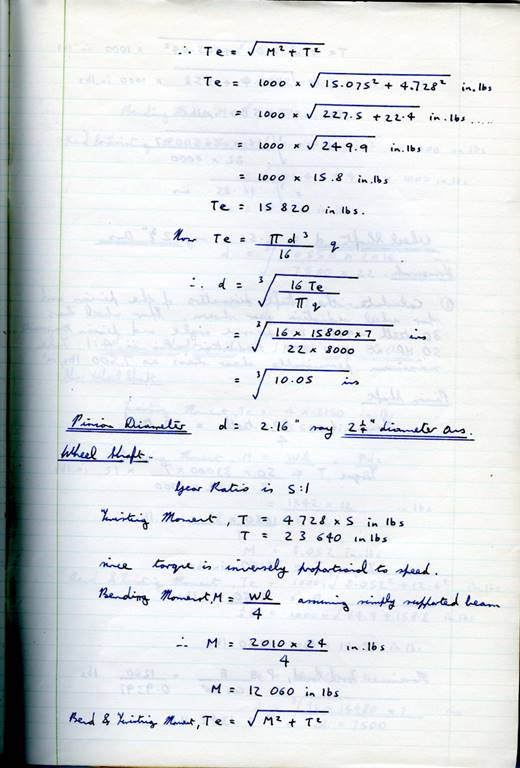 ∴ Te = √M² + T²
Te = 1000 × √15.075² + 4.728² in.lbs
= 1000 × √227.5 + 22.4 in.lbs....
= 1000 × √249.9 in.lbs
= 1000 × 15.8 in.lbs
Te = 15 820 in lbs.
Now Te = πd³/16 q
∴ d = ³√16 Te / πq
= ³√16 × 15800 × 7 / 22 × 8000 ins
= ³√10.05 ins
Pinion Diameter d = 2.16" say 2¼" diameter Ans.
Wheel Shaft.
Gear Ratio is 5:1
Twisting Moment, T = 4728 × 5 in lbs
T = 23 640 in lbs
since torque is inversely proportional to speed.
Bending Moment, M = Wl/4 assuming simply supported beam
∴ M = 2010 × 24 / 4 in.lbs
M = 12 060 in lbs
Bend & Twisting Moment, Te = √M² + T²